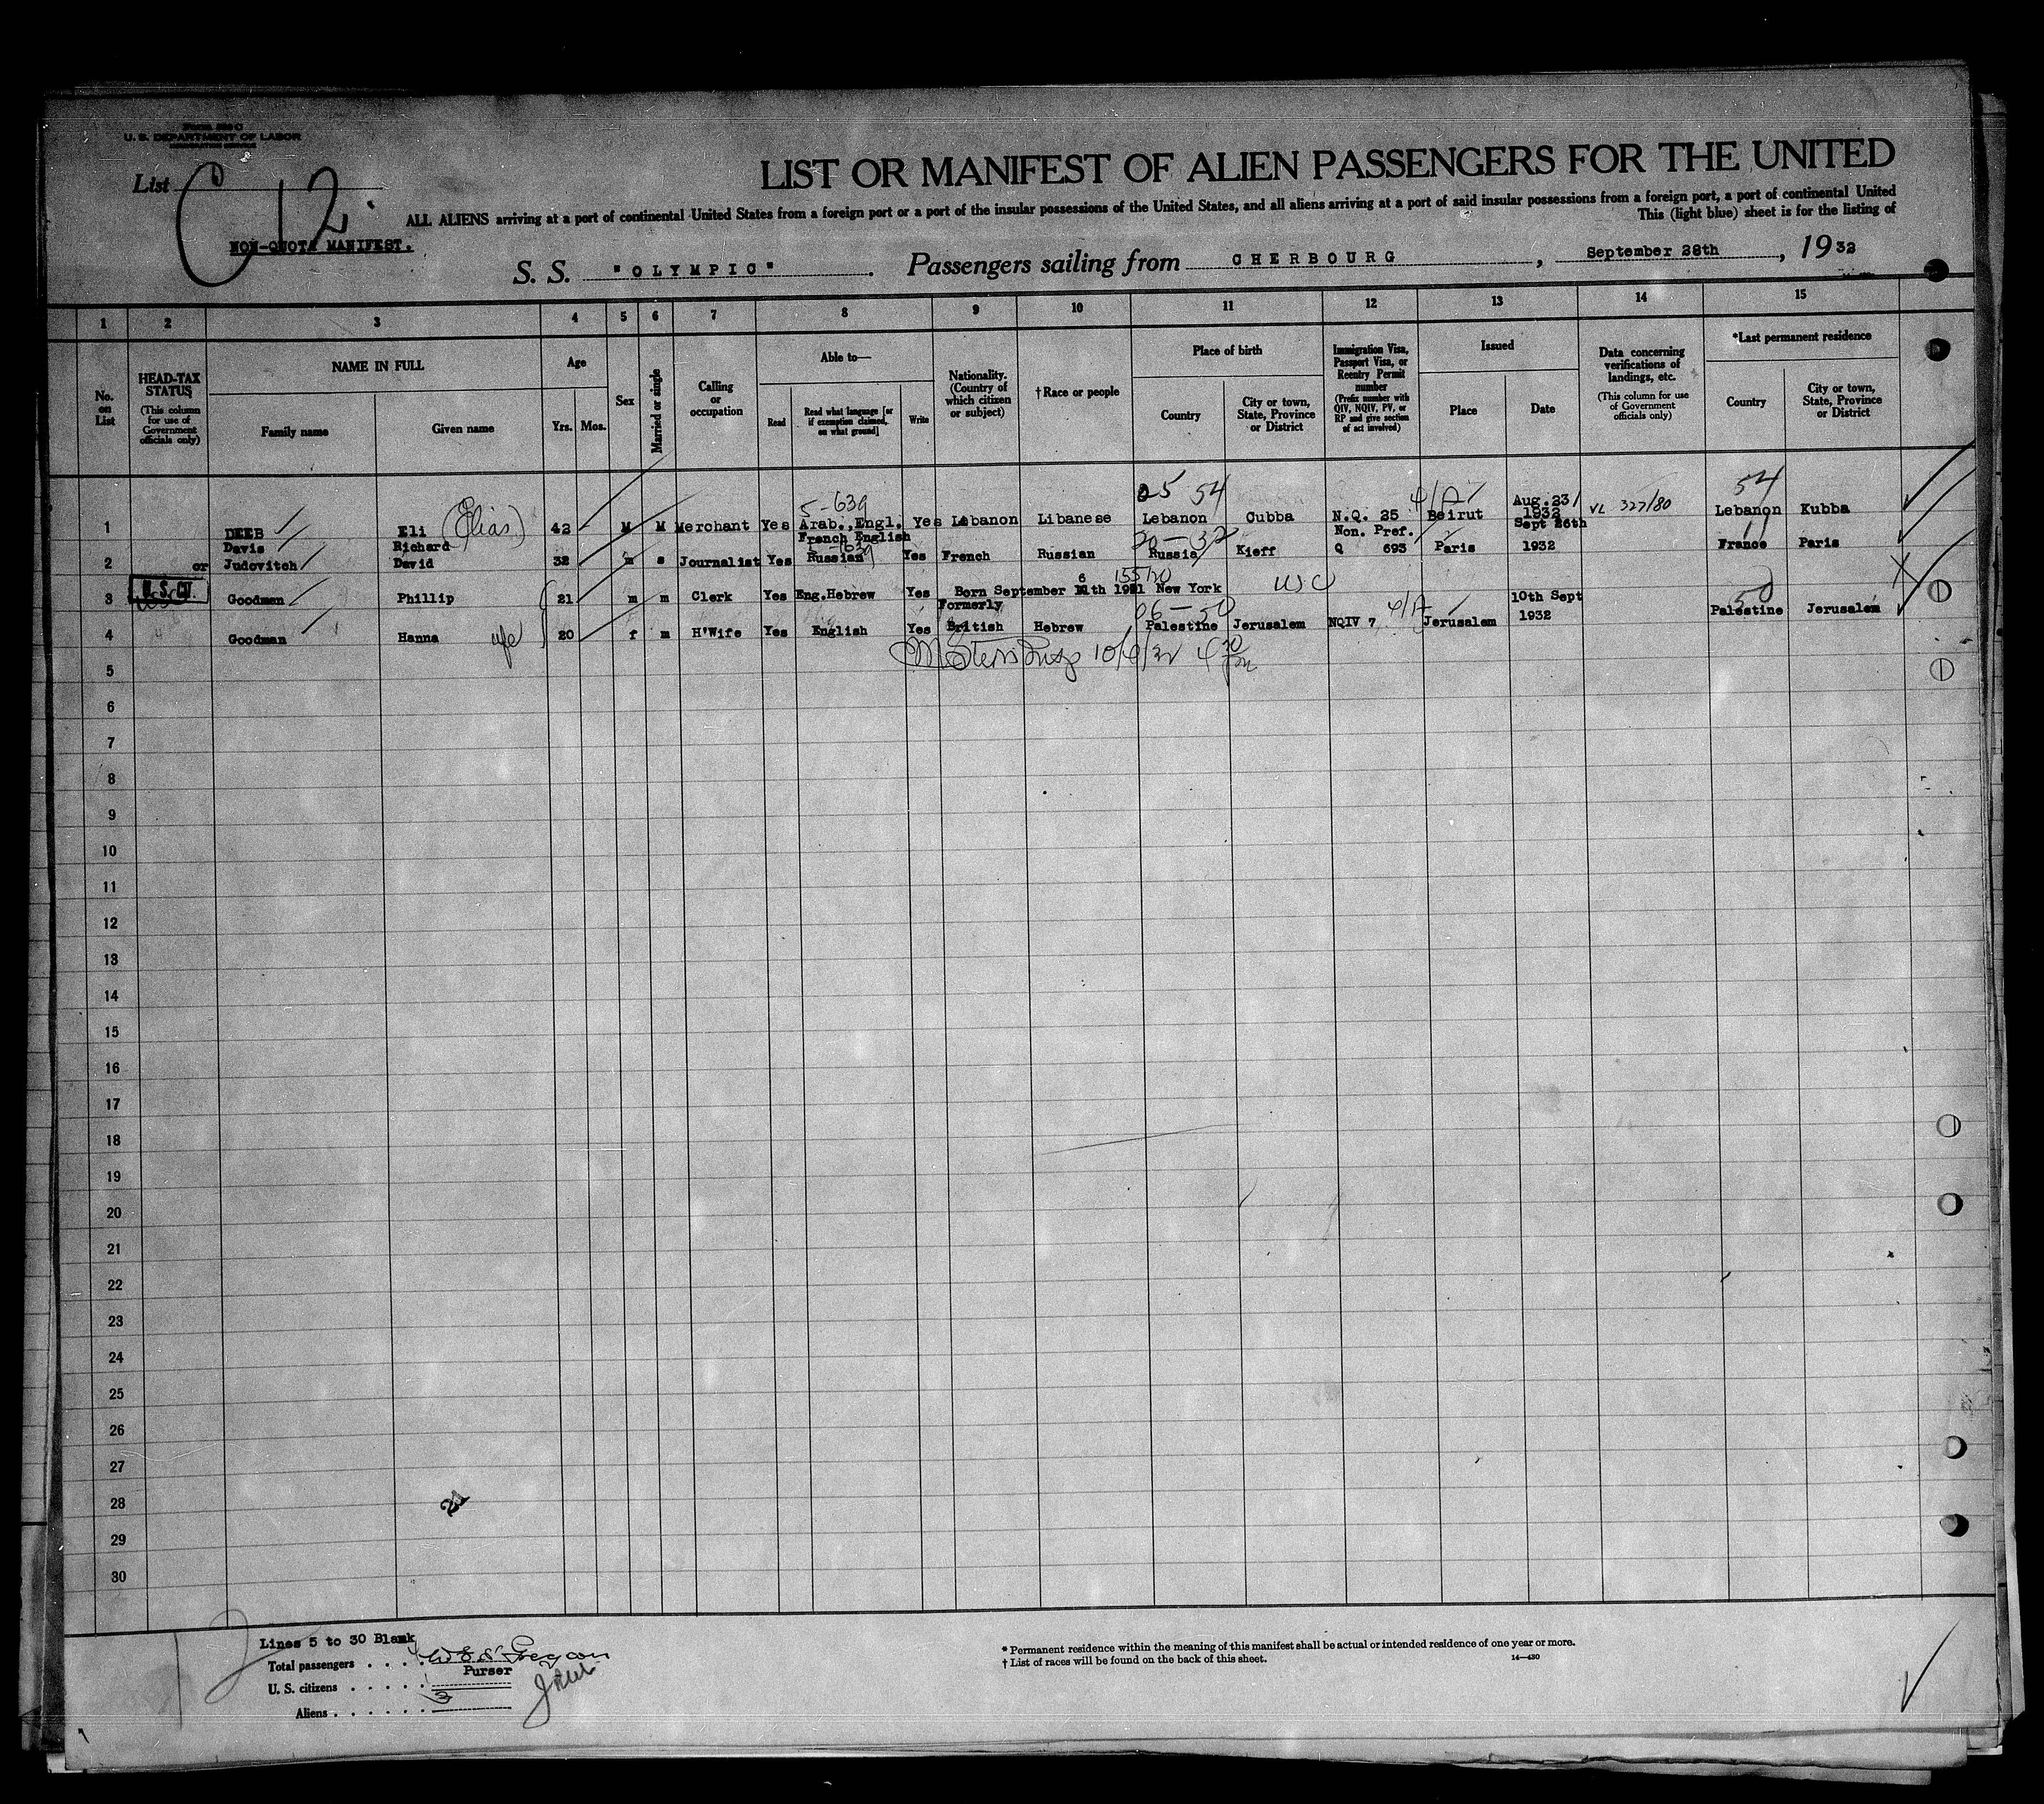 Form 500 C
U. S. DEPARTMENT OF LABOR
IMMIGRATION SERVICE
List C 12.
NON-QUOTA MANIFEST.
LIST OR MANIFEST OF ALIEN PASSENGERS FOR THE UNITED
ALL ALIENS arriving at a port of continental United States from a foreign port or a port of the insular possessions of the United States, and all aliens arriving at a port of said insular possessions from a foreign port, a port of continental United
This (light blue) sheet is for the listing of
S. S. "OLYMPIC". Passengers sailing from CHERBOURG, September 28th, 1932
1 2 3 4 5 6 7 8 9 10 11 12 13 14 15
No. on List
HEAD-TAX STATUS
(This column for use of Government officials only)
NAME IN FULL
Family name
Given name
Age
Yrs. Mos.
Sex
Married or single
Calling or occupation
Able to—
Read
Read what language [or if exemption claimed, on what ground]
Write
Nationality. (Country of which citizen or subject)
†Race or people
Place of birth
Country
City or town, State, Province or District
Immigration Visa, Passport Visa, or Reentry Permit number
(Prefix number with QIV, NQIV, PV, or RP and give section of act involved)
Issued
Place
Date
Data concerning verifications of landings, etc.
(This column for use of Government officials only)
*Last permanent residence
Country
City or town, State, Province or District
5-639 05 54 4/A 54
1 DEEB Eli (Elias) 42 M M Merchant Yes Arab.,Engl. Yes Lebanon Libanese Lebanon Cubba N.Q. 25 Beirut Aug.23/ 1932 VL 327/80 Lebanon Kubba
Davis Richard French English 20-32 Non. Pref. Sept 26th 11
2 or Judovitch David 32 m s Journalist Yes Russian Yes French Russian Russia Kieff Q 693 Paris 1932 France Paris X
3 U.S. CIT. Goodman Phillip 21 m m Clerk Yes Eng.Hebrew Yes Born September 6 11th 1911 New York 155/20 USC
Formerly 06-50 4/A 10th Sept 50
4 Goodman Hanna wfe 20 f m H'Wife Yes English Yes British Hebrew Palestine Jerusalem NQIV 7 Jerusalem 1932 Palestine Jerusalem
5
6
7
8
9
10
11
12
13
14
15
16
17
18
19
20
21
22
23
24
25
26
27
28
29
30
21
Lines 5 to 30 Blank
Total passengers . . . . 4
Purser
U. S. citizens . . . . . 1
Aliens . . . . . . 3
* Permanent residence within the meaning of this manifest shall be actual or intended residence of one year or more.
† List of races will be found on the back of this sheet.
14—430